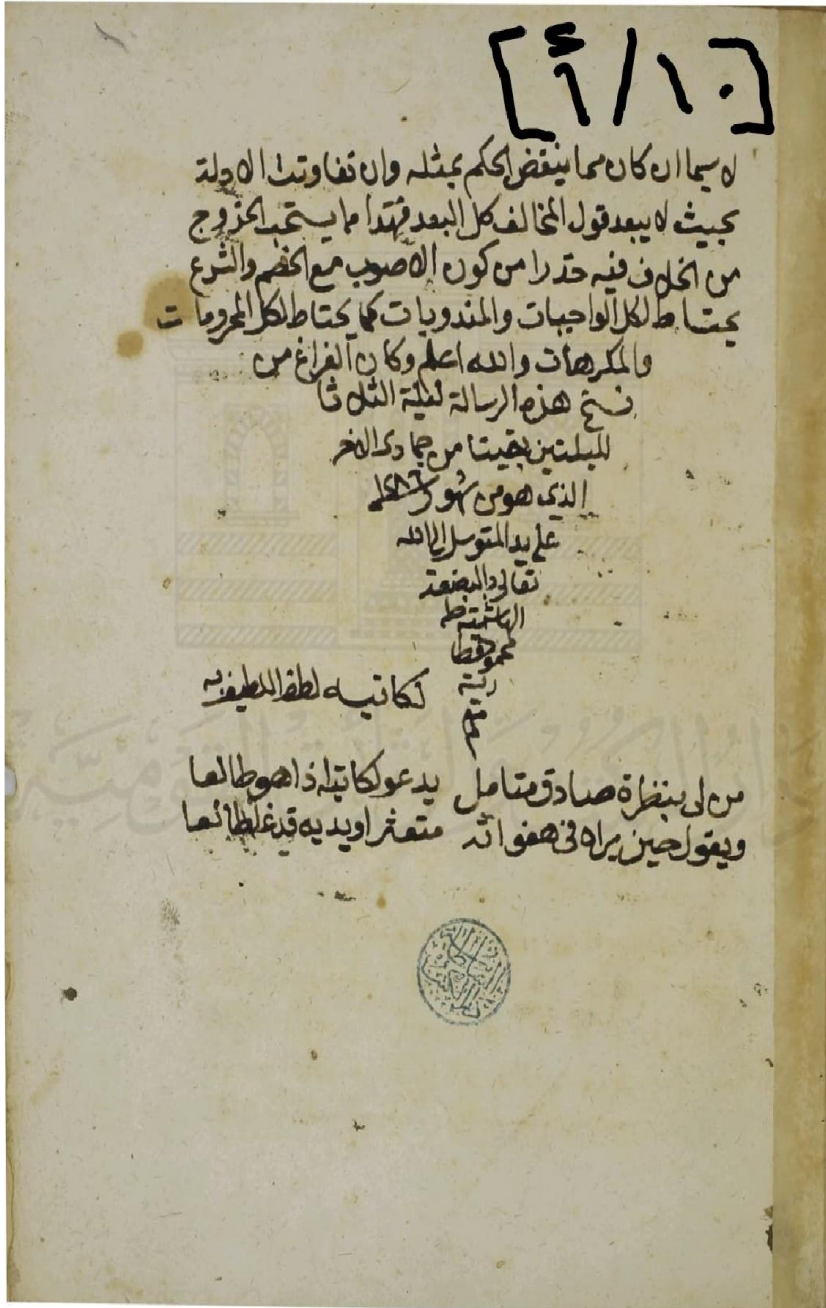 [١٠/أ]
لا سيما ان كان مما ينقض الحكم بمثله وان تفاوتت الادلة
بحيث لا يبعد قول المخالف كل البعد فهذا مما يستحب الخروج
من الخلاف فيه حذرا من كون الاصوب مع الخصم والشرع
يحتاط لكل الواجبات والمندوبات كما يحتاط لكل المحرومات
والمكرهات والله اعلم وكان الفراغ من
نسخ هذه الرسالة ليلة الثلاثا
لليلتين بقيتا من جمادى الاخر
الذي هو من شهور
على يد المتوسل الى الله
تعالى بالبضعة
الهاشمية
محمود قطا
رية
لكاتبه لطف اللطيف به
من لى بنظرة صادق متامل يدعو لكاتبه اذا هو طالعا
ويقول حين يراه فى هفواته متعثرا ويديه قد غلطا لعا